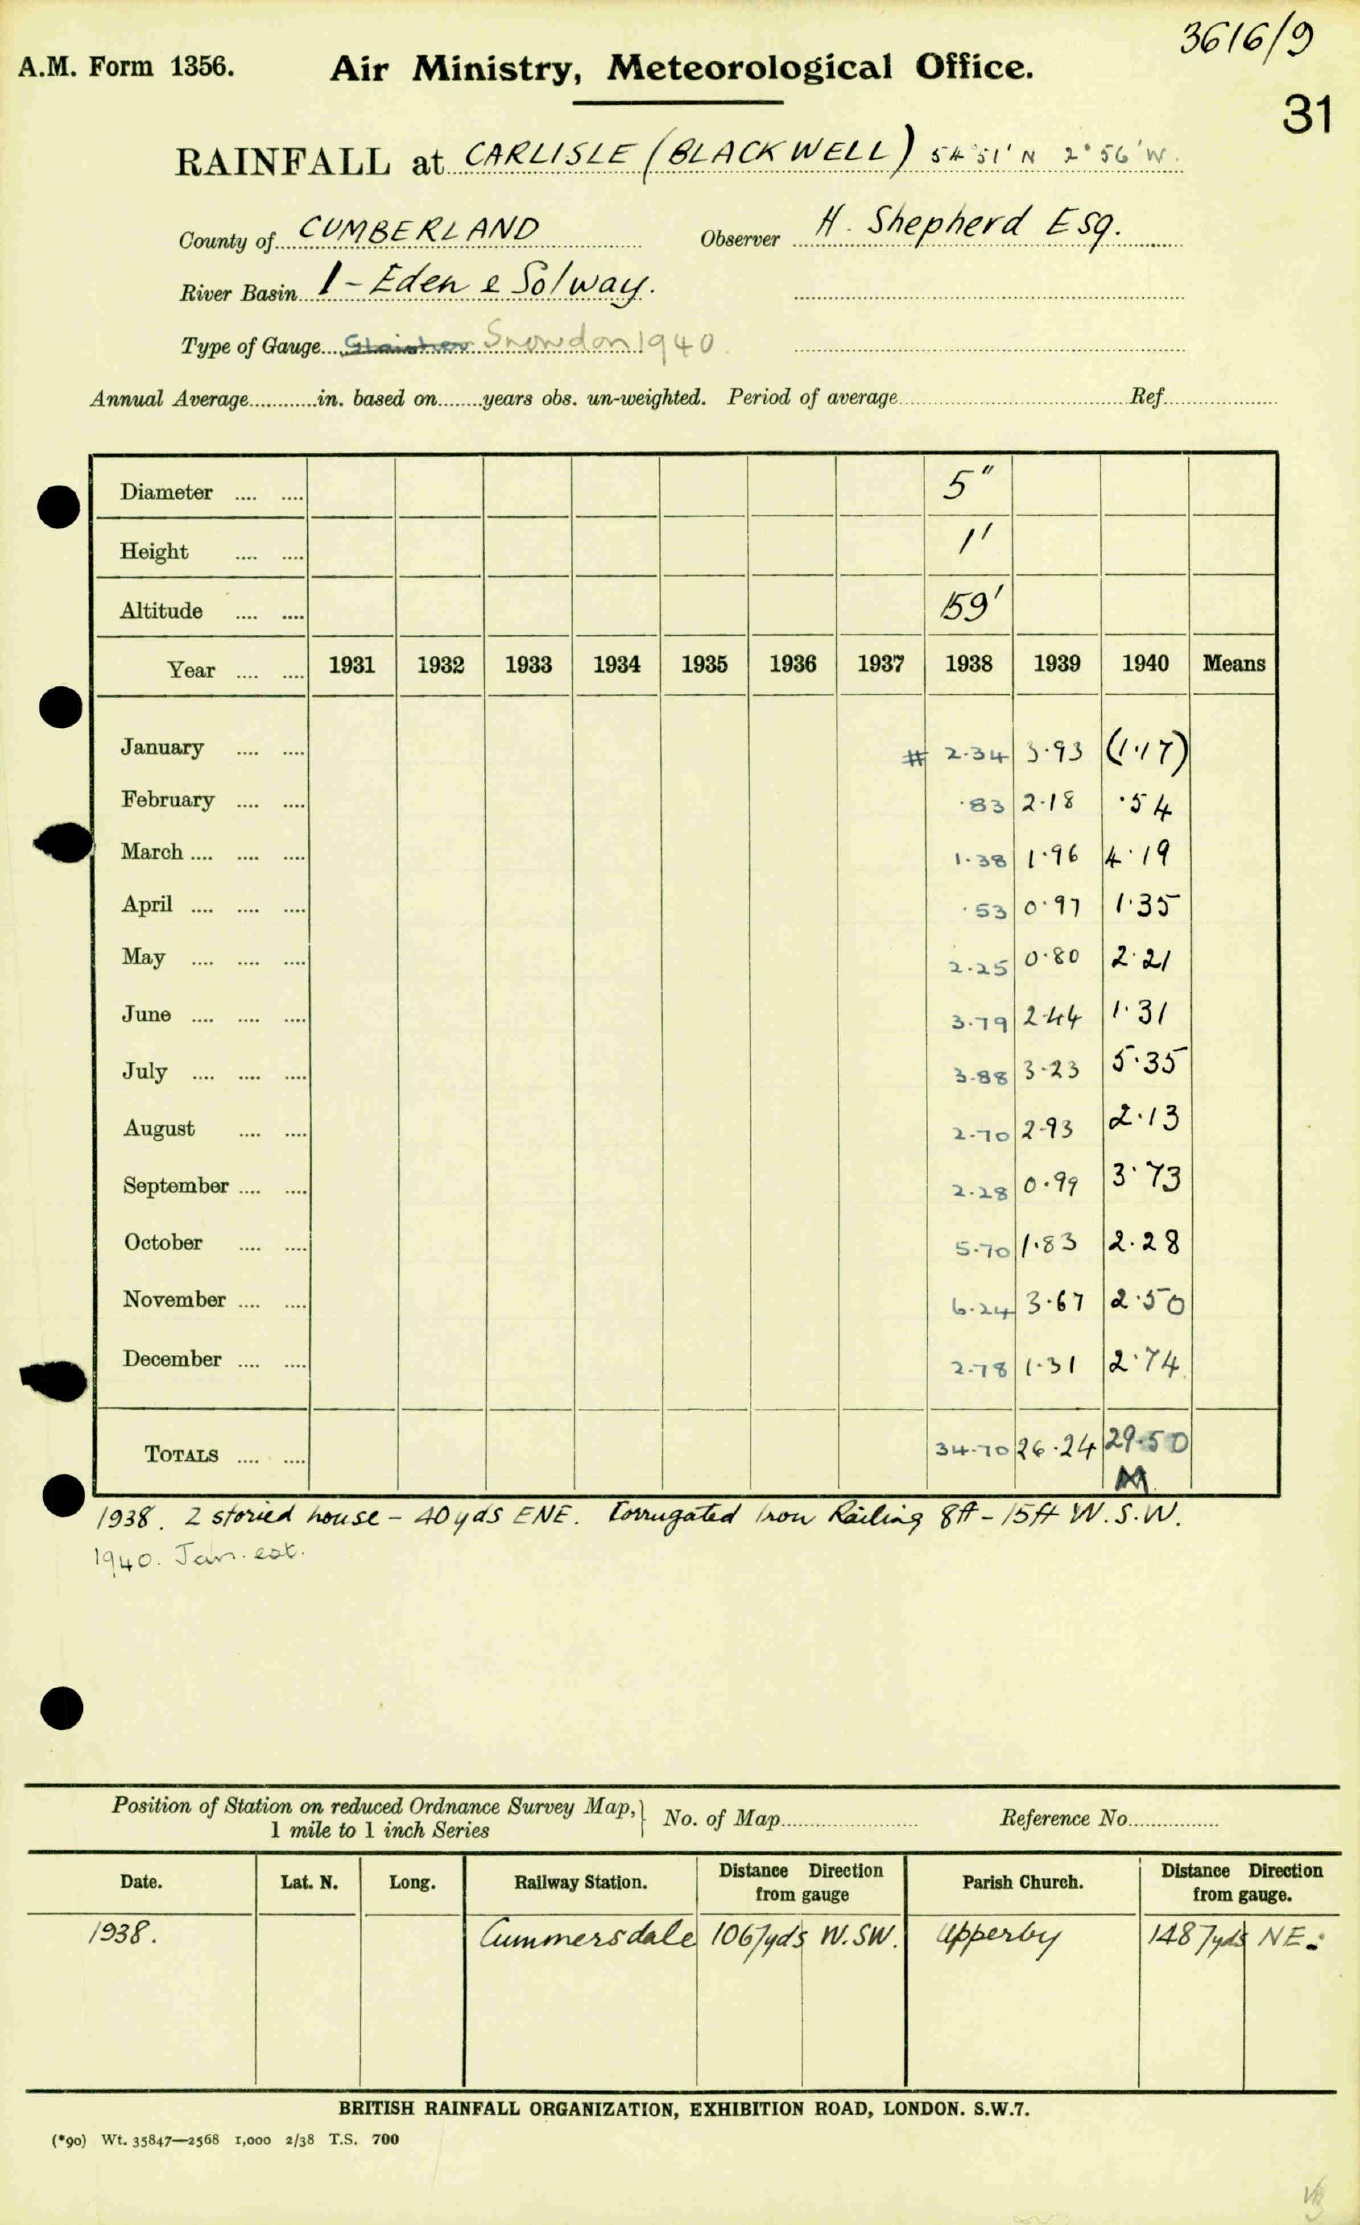 3616/9
A.M. Form 1356. Air Ministry, Meteorological Office.
31
RAINFALL at CARLISLE (BLACKWELL) 54°51'N 2°56'W.
County of CUMBERLAND Observer H. Shepherd Esq.
River Basin 1 - Eden & Solway.
Type of Gauge Glaisher Snowdon 1940
Annual Average in. based on years obs. un-weighted. Period of average Ref.
Diameter 5"
Height 1'
Altitude 159'
Year 1931 1932 1933 1934 1935 1936 1937 1938 1939 1940 Means
January # 2.34 3.93 (1.17)
February .83 2.18 .54
March 1.38 1.96 4.19
April .53 0.97 1.35
May 2.25 0.80 2.21
June 3.79 2.44 1.31
July 3.88 3.23 5.35
August 2.70 2.93 2.13
September 2.28 0.99 3.73
October 5.70 1.83 2.28
November 6.24 3.67 2.50
December 2.78 1.31 2.74
TOTALS 34.70 26.24 29.50
M
1938. 2 storied house - 40yds ENE. Corrugated Iron Railing 8ft - 15ft W.S.W.
1940. Jan. est.
Position of Station on reduced Ordnance Survey Map, No. of Map Reference No.
1 mile to 1 inch Series
Date. Lat. N. Long. Railway Station. Distance Direction from gauge Parish Church. Distance Direction from gauge.
1938. Cummersdale 1067yds W.SW. Upperby 1487yds NE.
BRITISH RAINFALL ORGANIZATION, EXHIBITION ROAD, LONDON. S.W.7.
(*90) Wt. 35847—2568 1,000 2/38 T.S. 700